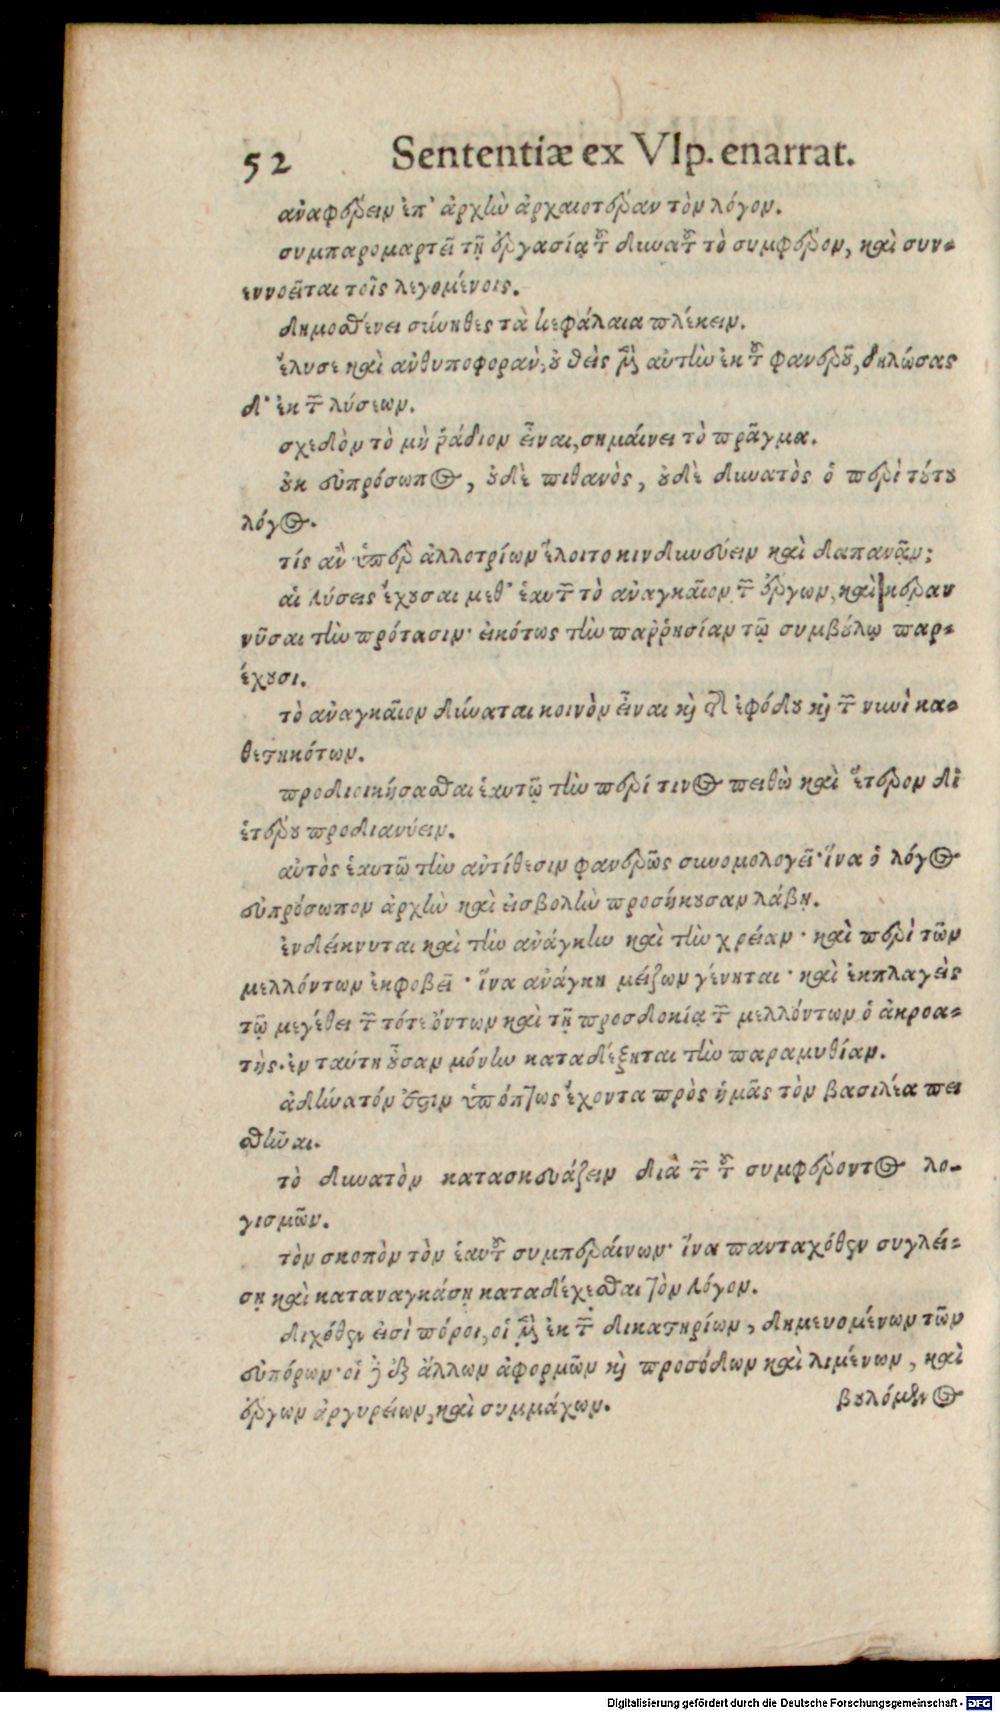 52 Sententiæ ex Vlp. enarrat.
ἀναφέρειν ἐπ' ἀρχὴν ἀρχαιοτέραν τὸν λόγον.
συμπαρομαρτεῖ τῇ ἐργασίᾳ τοῦ δυνατοῦ τὸ συμφέρον, καὶ συν-
εννοεῖται τοῖς λεγομένοις.
δημοσθένει σύνηθες τὰ κεφάλαια πλέκειν.
ἔλυσε καὶ ἀνθυποφορὰν, οὐ θεὶς μὲν αὐτὴν ἐκ τοῦ φανεροῦ, δηλώσας
δ' ἐκ τῶν λύσεων.
σχεδὸν τὸ μὴ ῥάδιον εἶναι, σημαίνει τὸ πρᾶγμα.
οὐκ εὐπρόσωπος, οὐδὲ πιθανὸς, οὐδὲ δυνατὸς ὁ περὶ τούτου
λόγος.
τίς ἂν ὑπὲρ ἀλλοτρίων ἕλοιτο κινδυνεύειν καὶ δαπανᾷν;
αἱ λύσεις ἔχουσαι μεθ' ἑαυτῶν τὸ ἀναγκαῖον τῶν ἔργων, καὶ κεραν
νῦσαι τὴν πρότασιν· εἰκότως τὴν παῤῥησίαν τῷ συμβούλῳ παρ-
έχουσι.
τὸ ἀναγκαῖον δύναται κοινὸν εἶναι καὶ τῆς ἐφόδου καὶ τῶν νυνὶ κα-
θεστηκότων.
προδιοικήσασθαι ἑαυτῷ τὴν περί τινος πειθὼ καὶ ἕτερον δι'
ἑτέρου προδιανύειν.
αὐτὸς ἑαυτῷ τὴν ἀντίθεσιν φανερῶς συνομολογεῖ· ἵνα ὁ λόγος
εὐπρόσωπον ἀρχὴν καὶ εἰσβολὴν προσήκουσαν λάβῃ.
ἐνδείκνυται καὶ τὴν ἀνάγκην καὶ τὴν χρείαν· καὶ περὶ τῶν
μελλόντων ἐκφοβεῖ· ἵνα ἀνάγκη μείζων γένηται· καὶ ἐκπλαγεὶς
τῷ μεγέθει τῶν τότε ὄντων καὶ τῇ προσδοκίᾳ τῶν μελλόντων ὁ ἀκροα-
τὴς· ἐν ταύτῃ οὖσαν μόνην καταδέξηται τὴν παραμυθίαν.
ἀδύνατόν ἐστιν ὑπόπτως ἔχοντα πρὸς ἡμᾶς τὸν βασιλέα πει
σθῆναι.
τὸ δυνατὸν κατασκευάζειν διὰ τῶν τοῦ συμφέροντος λο-
γισμῶν.
τὸν σκοπὸν τὸν ἑαυτοῦ συμπεραίνων· ἵνα πανταχόθεν συγλεί-
σῃ καὶ καταναγκάσῃ καταδέχεσθαι τὸν λόγον.
διχόθεν εἰσὶ πόροι, οἱ μὲν ἐκ τῶν δικαστηρίων, δημευομένων τῶν
εὐπόρων· οἱ δὲ ἐξ ἄλλων ἀφορμῶν καὶ προσόδων καὶ λιμένων, καὶ
ἔργων ἀργυρείων, καὶ συμμάχων. βουλόμενος
Digitalisierung gefördert durch die Deutsche Forschungsgemeinschaft - DFG